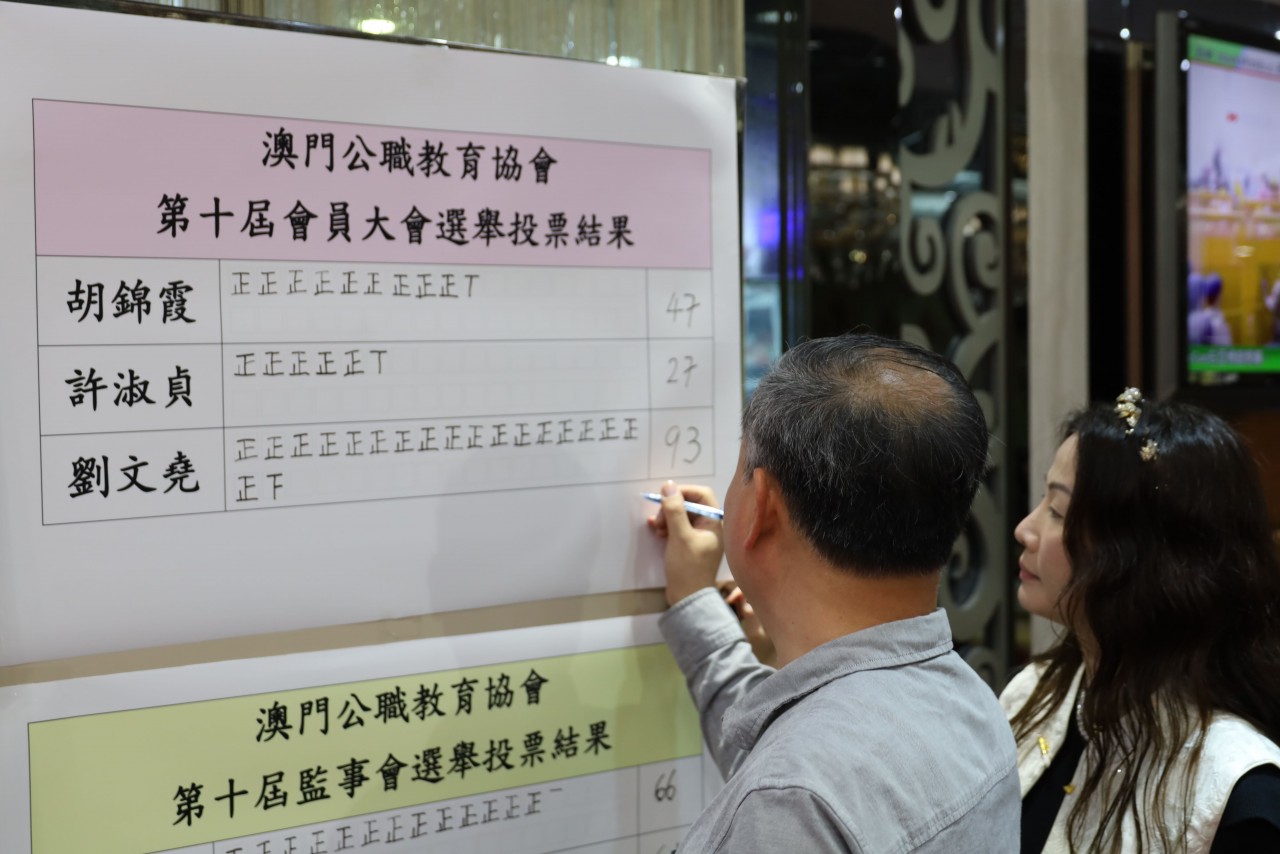 澳門公職教育協會
第十屆會員大會選舉投票結果
胡錦霞 正正正正正正正正正丅 47
許淑貞 正正正正正丅 27
劉文堯 正正正正正正正正正正正正正正正正正 93
正下
澳門公職教育協會
第十屆監事會選舉投票結果
正正正正正正正正正正正正正一 66